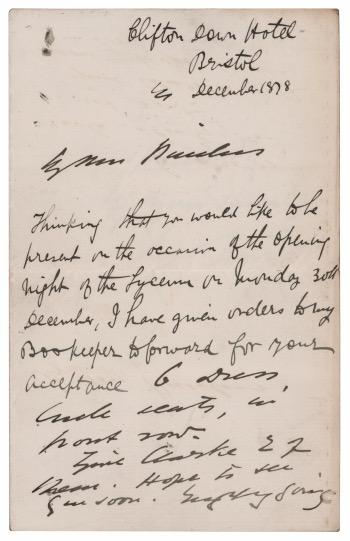 Clifton Down Hotel
Bristol
December 1878
My Dear
Thinking that you would like to be
present on the occasion of the opening
night of the Lyceum on Monday 30th
December, I have given orders to my
Bookeeper to forward for your
acceptance 6 Dress
Circle seats, in
front row.
Give Clarke 2 of
them. Hope to see
you soon. going